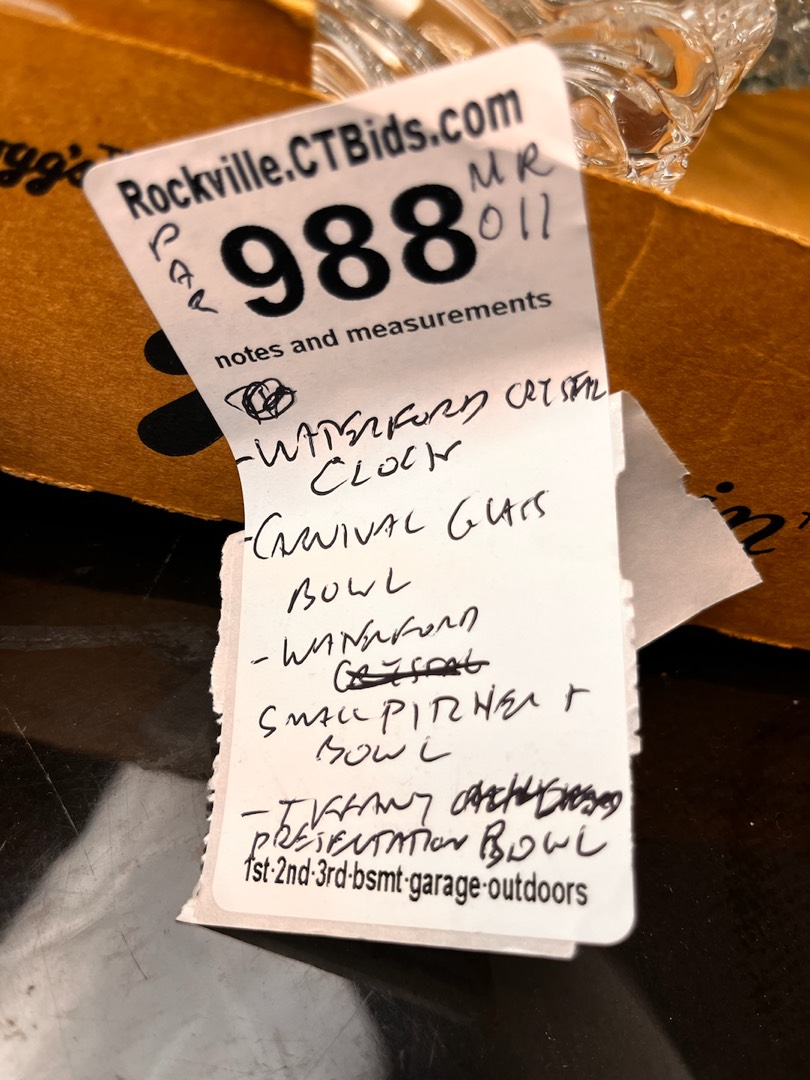 gg's
Rockville.CTBids.com
PAR
988
MR
011
notes and measurements
- WATERFORD CRYSTAL
CLOCK
- CARNIVAL GLASS
BOWL
- WATERFORD
CRYSTAL
SMALL PITCHER +
BOWL
- TIFFANY
PRESENTATION BOWL
1st·2nd·3rd·bsmt·garage·outdoors
in